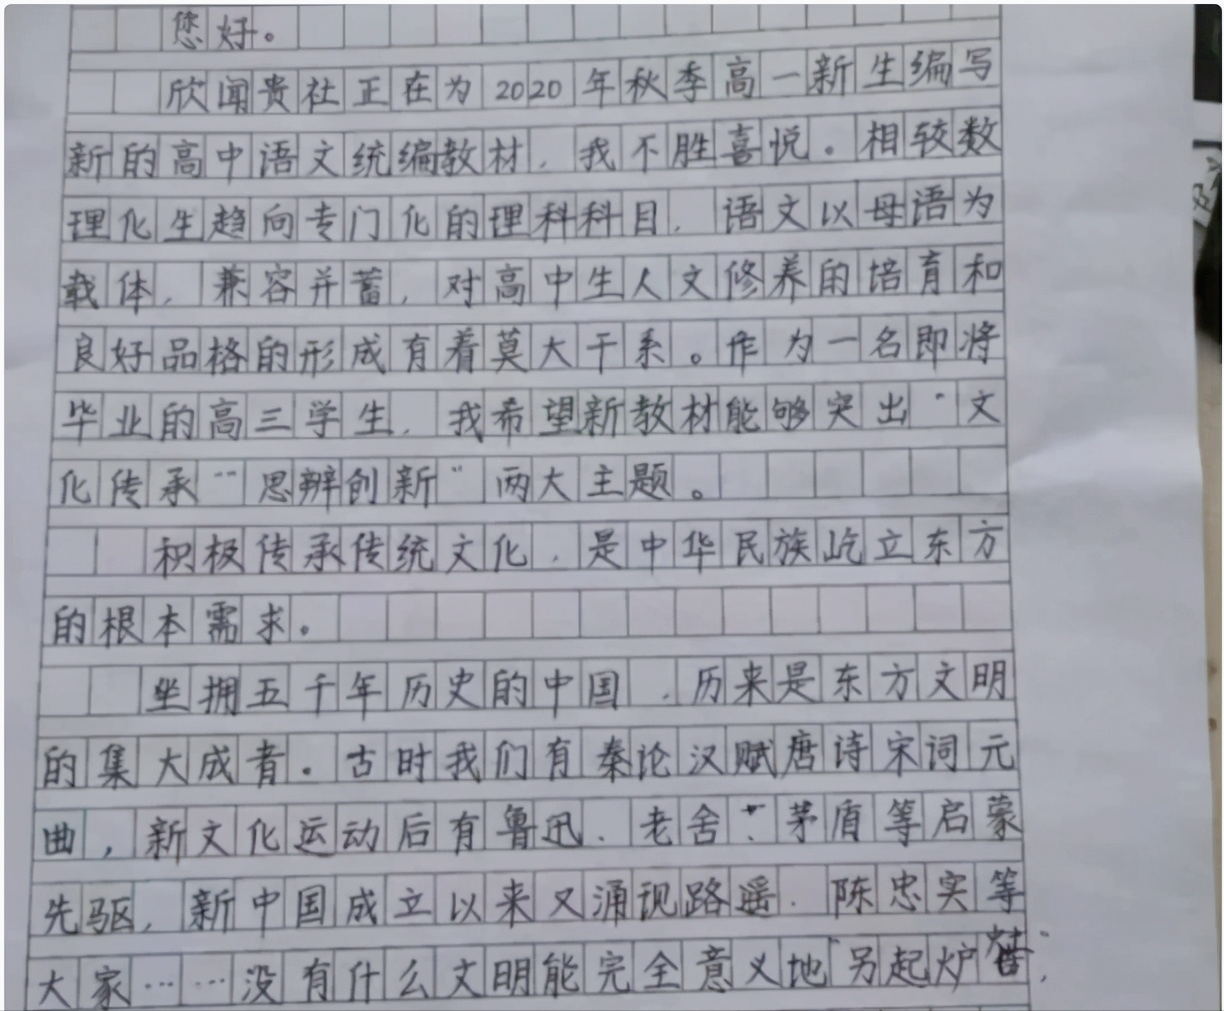 您好。
欣闻贵社正在为2020年秋季高一新生编写
新的高中语文统编教材，我不胜喜悦。相较数
理化生趋向专门化的理科科目，语文以母语为
载体，兼容并蓄，对高中生人文修养的培育和
良好品格的形成有着莫大干系。作为一名即将
毕业的高三学生，我希望新教材能够突出“文
化传承”“思辨创新”两大主题。
积极传承传统文化，是中华民族屹立东方
的根本需求。
坐拥五千年历史的中国，历来是东方文明
的集大成者。古时我们有秦论汉赋唐诗宋词元
曲，新文化运动后有鲁迅、老舍、茅盾等启蒙
先驱，新中国成立以来又涌现路遥、陈忠实等
大家……没有什么文明能完全意义地“另起炉灶”，